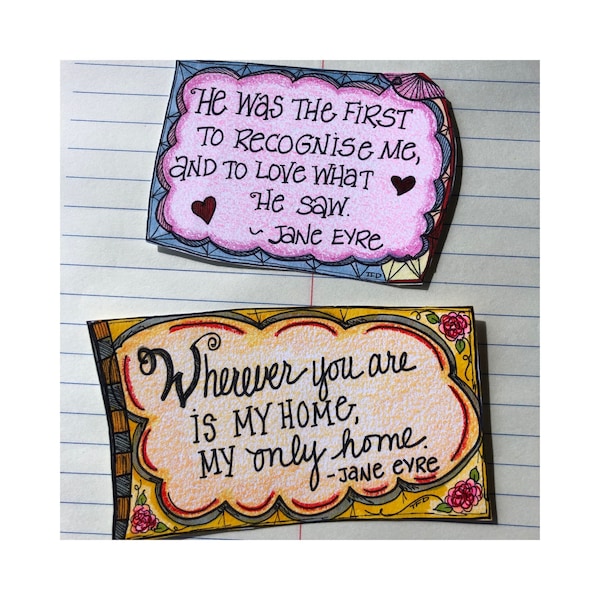 He was the first
to recognise me,
and to love what
He saw.
~ Jane Eyre
TFD
Wherever you are
is my home,
my only home.
- Jane Eyre
TFD